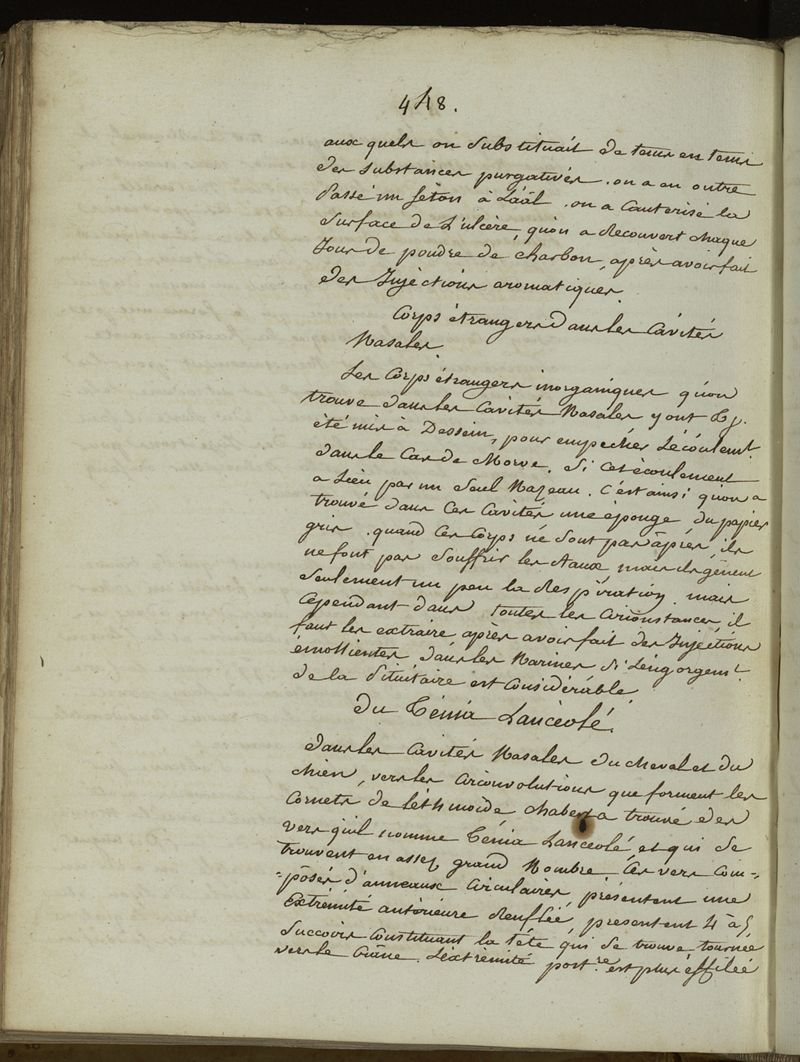 448.
aux quels on substituait de tems en tems
des substances purgatives. on a en outre
passé un séton à L'aâl. on a Cautérisé la
surface de L'ulcère, qu'on a recouvert chaque
Jour de poudre de charbon, après avoir fait
des Injéctions aromatiques.
Corps étrangers dans les Cavités
Nasales
Les Corps étrangers inorganiques qu'on
trouve dans les Cavités Nasales y ont
été mis à Dessein, pour empecher L'écoulemt.
dans le Cas de Morve. Si Cet écoulement
a Lieu par un seul Nazeau. C'est ainsi qu'on a
trouvé dans Ces Cavités une éponge, du papier
gris. quand Ces Corps ne sont pas apres, ils
ne font pas souffrir les aaux mais ils gênent
seulement un peu la Respiration. mais
Cependant dans toutes les Circonstances, il
faut les extraire après avoir fait des Injections
émollientes dans les Narines si L'engorgemt.
de la Pituitaire est Considérable
du Ténia Lancéolé.
dans les Cavités Nasales du cheval et du
chien, vers les Circonvolutions que forment les
Cornets de l'éthmoïde Chabert a trouvé des
vers qu'il nomme Ténia Lanceolé et qui se
trouvent en assez grand Nombre. Ces vers Com=
=posés d'anneaux Circulaires, présentent une
éxtrémité antérieure Renflée, présentent 4 à 5
succoirs Constituant la tête qui se trouve tournée
vers le Crâne. L'éxtrémité postre. est plus éffilée